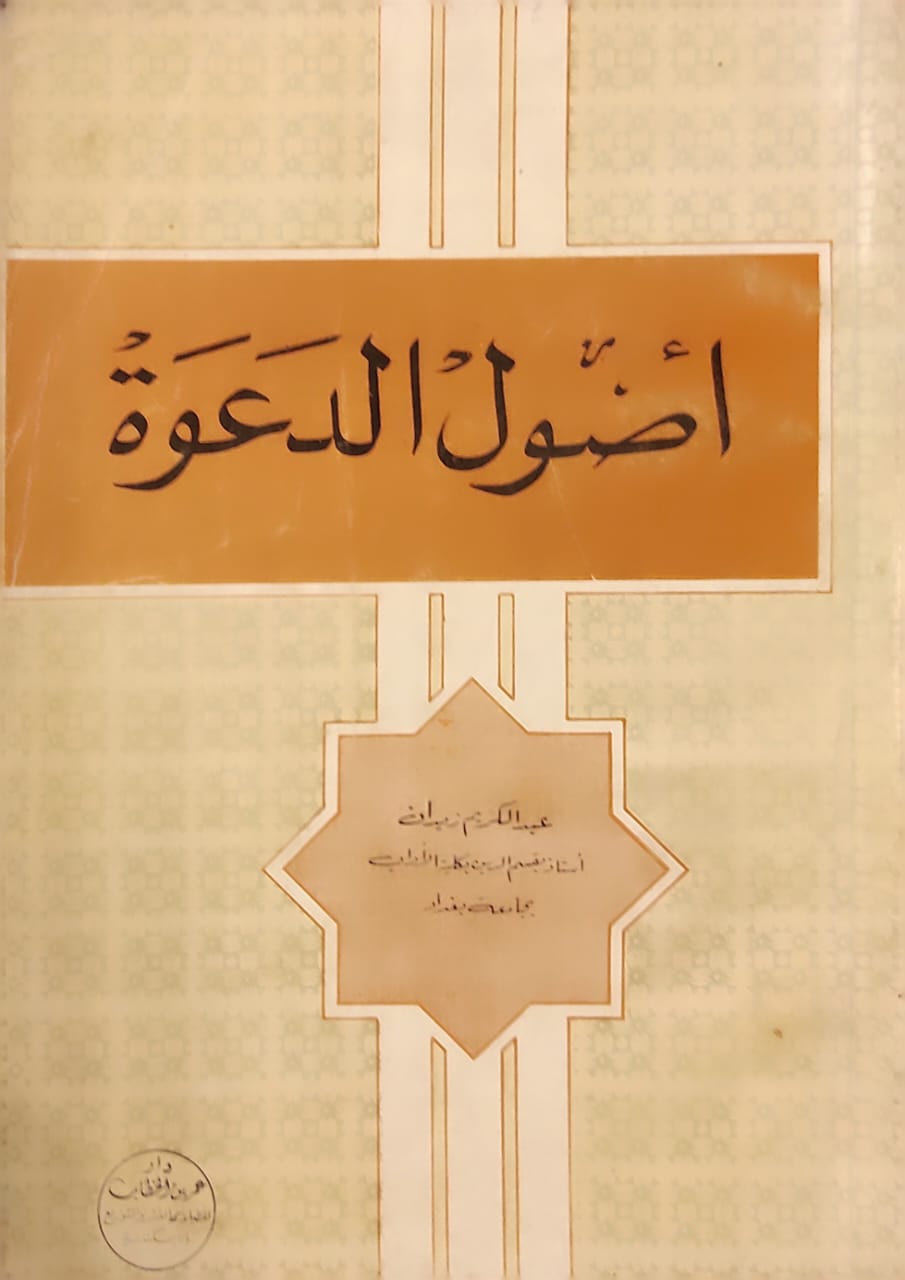 أصول الدعوة
عبد الكريم زيدان
أستاذ بقسم الدين بكلية الآداب
بجامعة بغداد
دار
عمر بن الخطاب
للطباعة والنشر والتوزيع